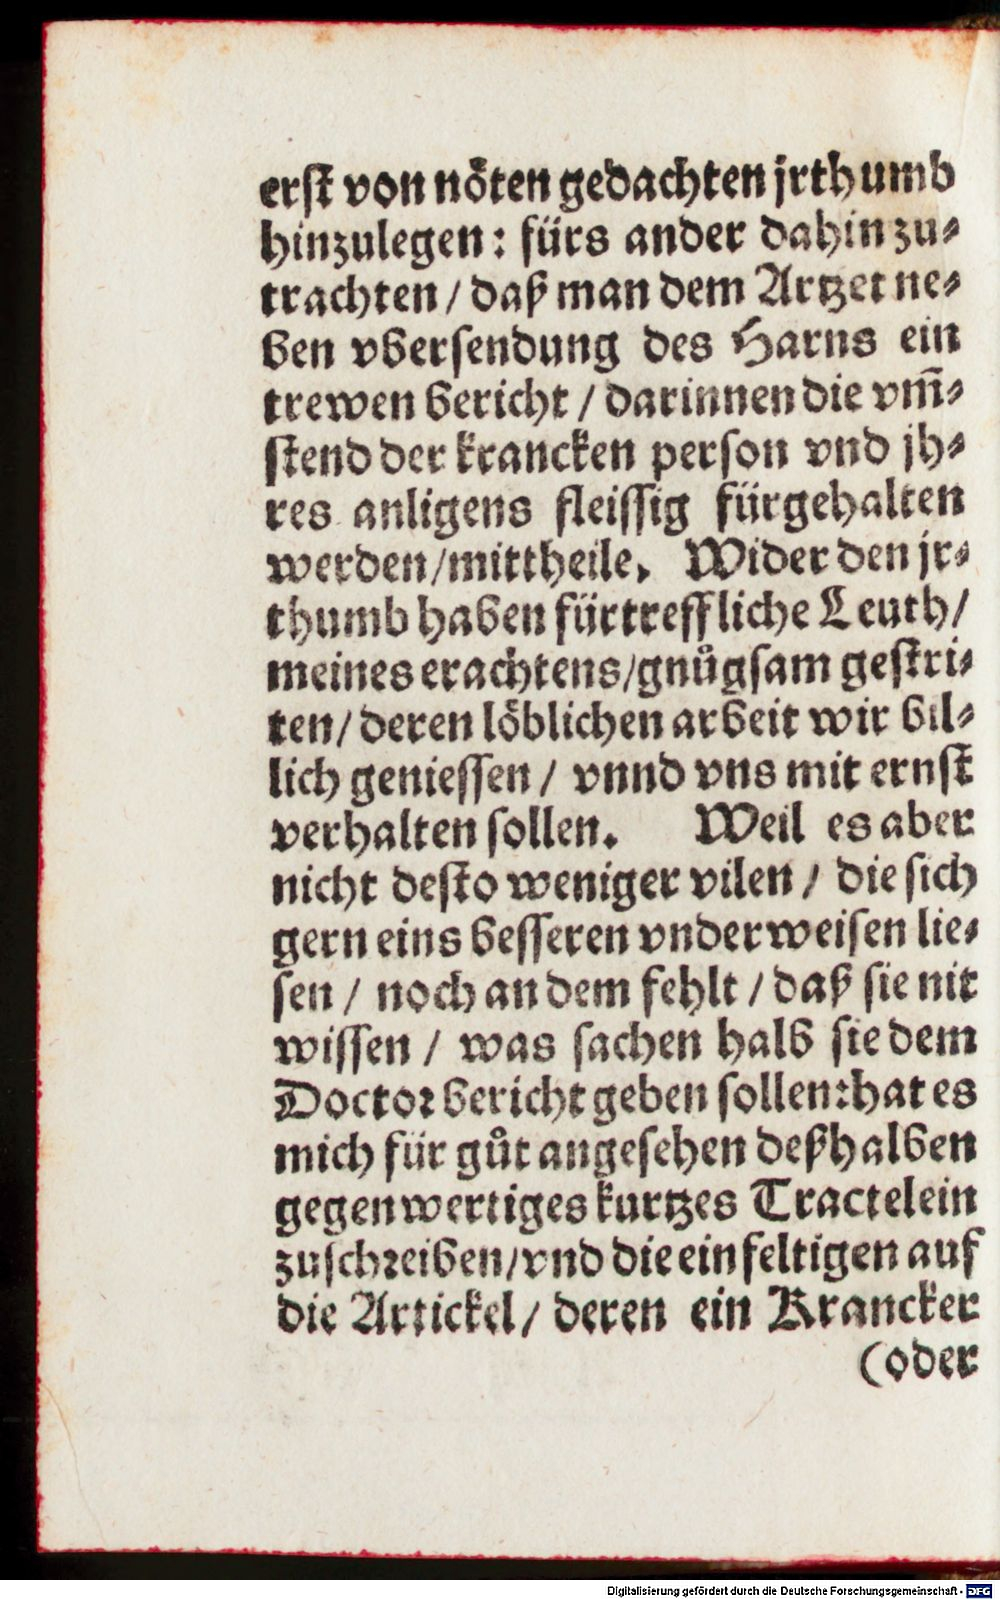 erst von nöten gedachten jrthumb
hinzulegen: fürs ander dahin zu⸗
trachten / daß man dem Artzet ne⸗
ben vbersendung des Harns ein
trewen bericht / darinnen die vm̃⸗
stend der krancken person vnd jh⸗
res anligens fleissig fürgehalten
werden/mittheile. Wider den jr⸗
thumb haben fürtreffliche Leuth/
meines erachtens/gnůgsam gestri⸗
ten/ deren löblichen arbeit wir bil⸗
lich geniessen / vnnd vns mit ernst
verhalten sollen. Weil es aber
nicht desto weniger vilen / die sich
gern eins besseren vnderweisen lie⸗
sen / noch an dem fehlt / daß sie nit
wissen / was sachen halb sie dem
Doctor bericht geben sollen:hat es
mich für gůt angesehen deßhalben
gegenwertiges kurtzes Tractelein
zuschreiben/vnd die einfeltigen auf
die Artickel/ deren ein Krancker
(oder
Digitalisierung gefördert durch die Deutsche Forschungsgemeinschaft - DFG